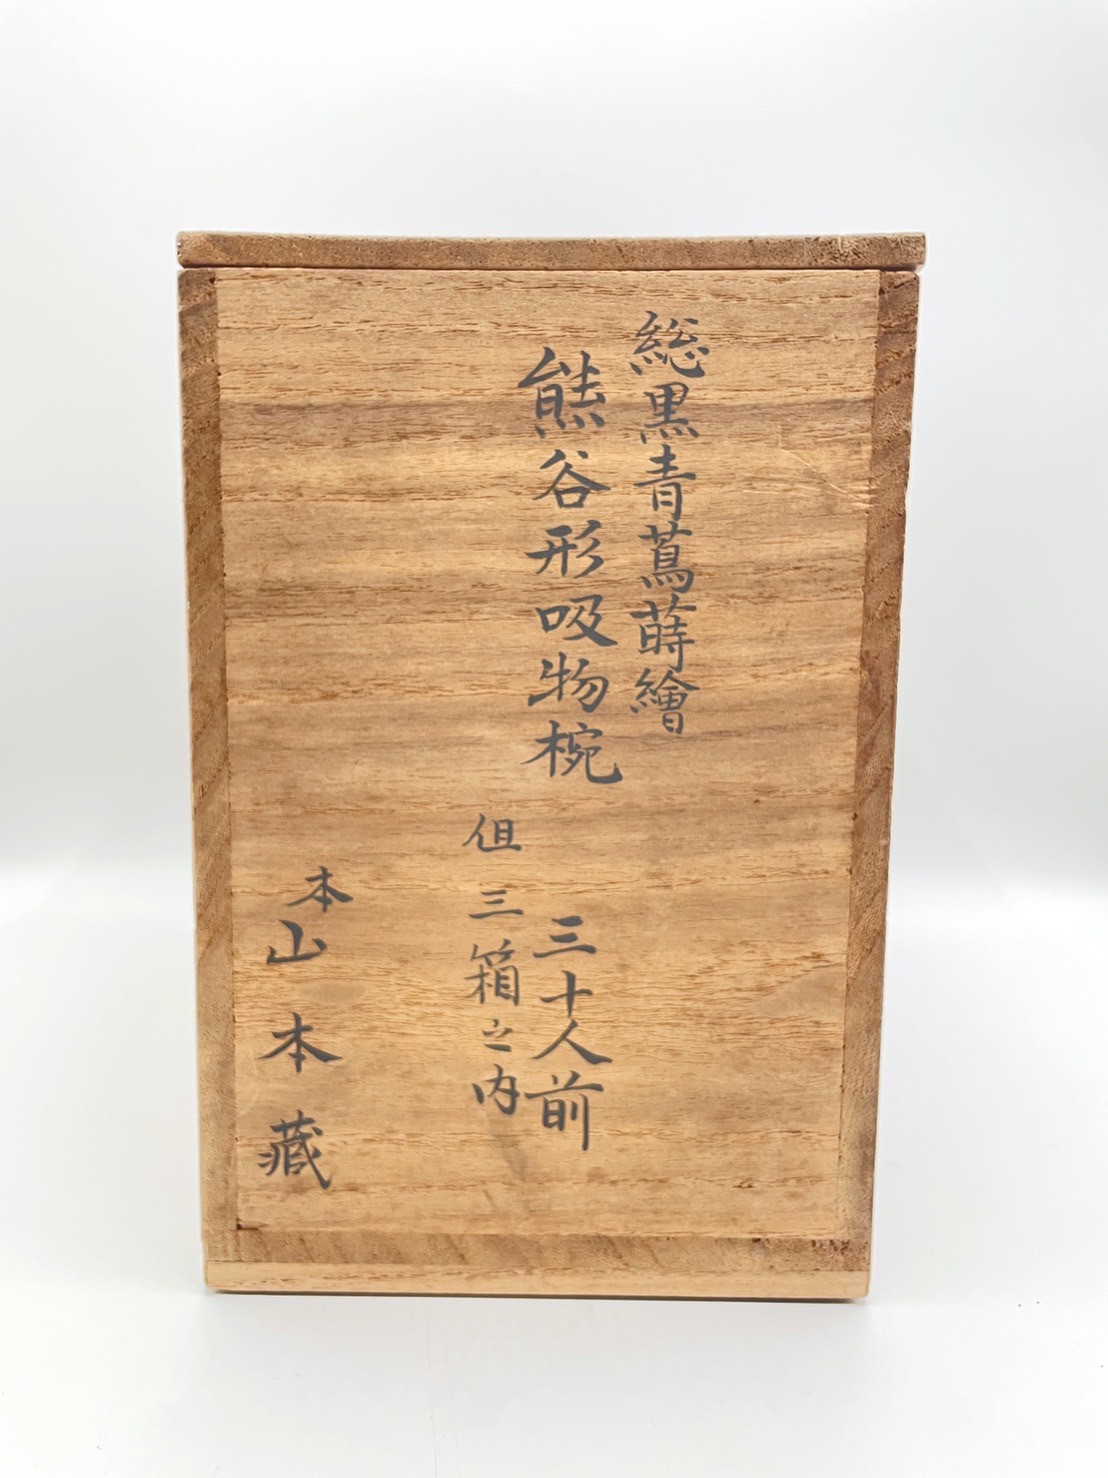 総黒青蔦蒔繪
熊谷形吸物椀
三十人前
但三箱之内
本
山本藏